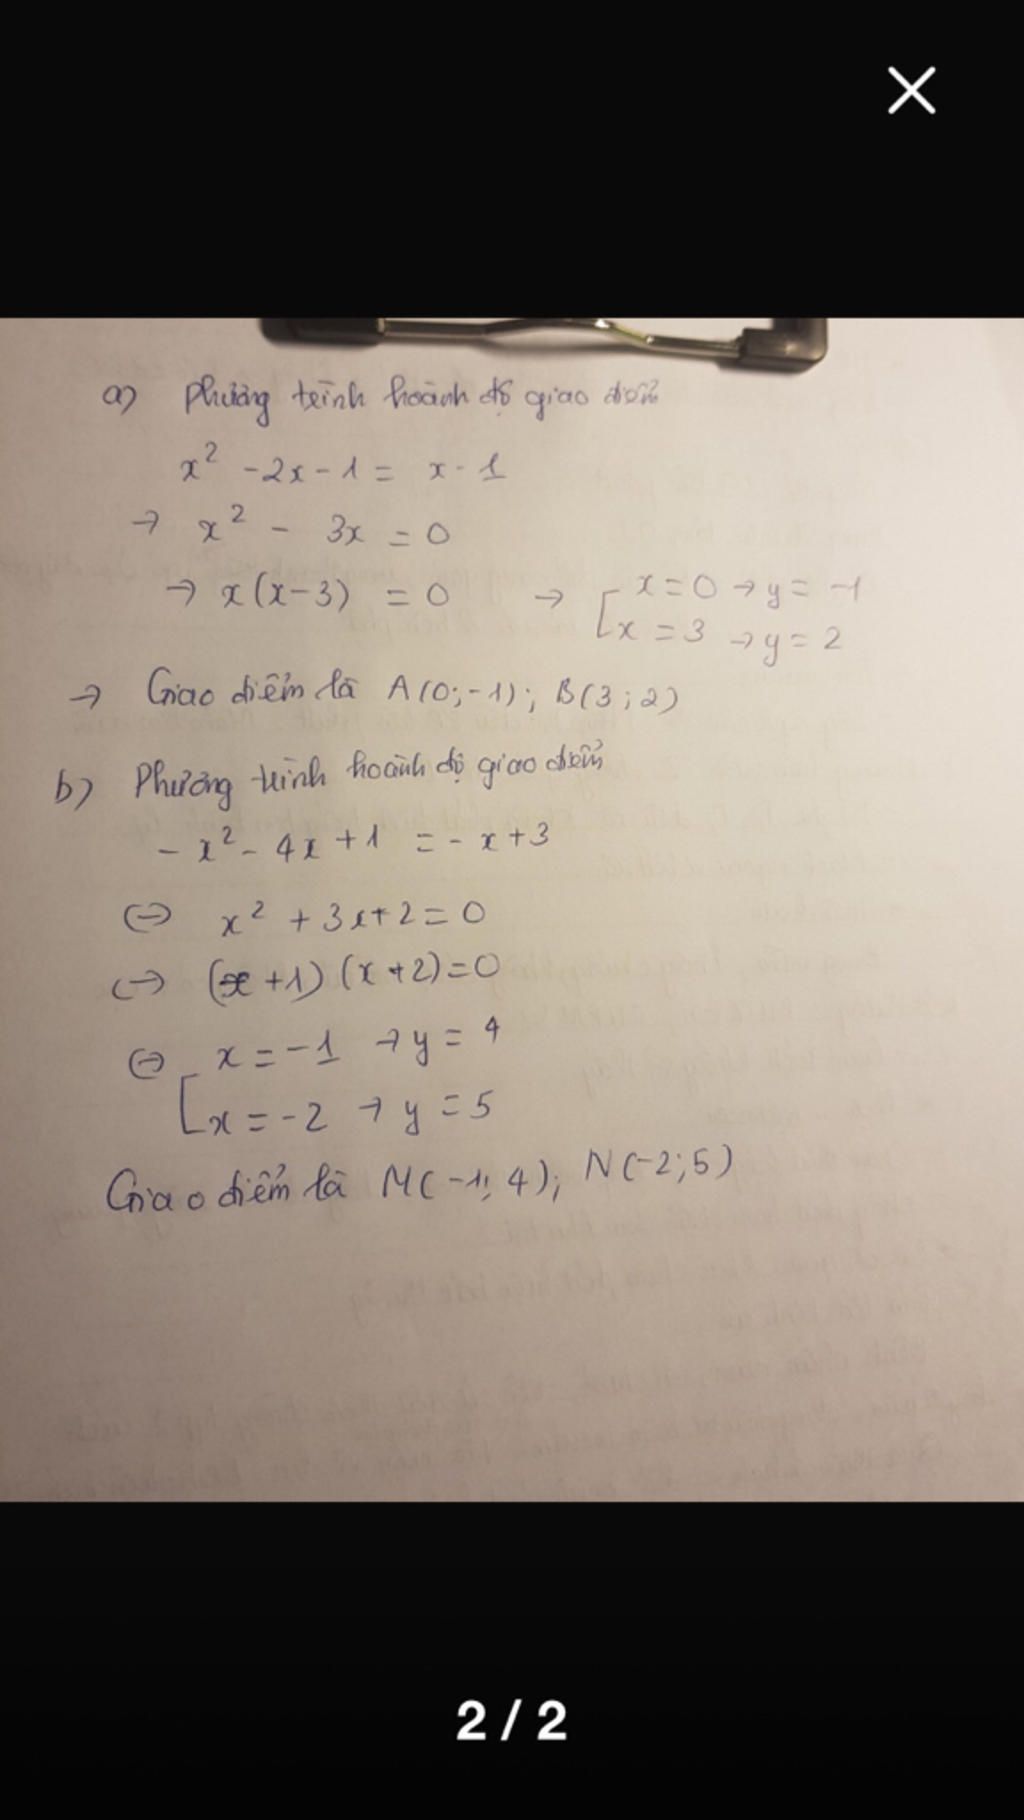 a) Phương trình hoành độ giao điểm
x² - 2x - 1 = x - 1
→ x² - 3x = 0
→ x(x-3) = 0 → [ x = 0 → y = -1
x = 3 → y = 2
→ Giao điểm là A(0;-1); B(3;2)
b) Phương trình hoành độ giao điểm
- x² - 4x + 1 = - x + 3
⇔ x² + 3x + 2 = 0
⇔ (x+1)(x+2) = 0
⇔ [ x = -1 → y = 4
x = -2 → y = 5
Giao điểm là M(-1; 4); N(-2; 5)
2 / 2